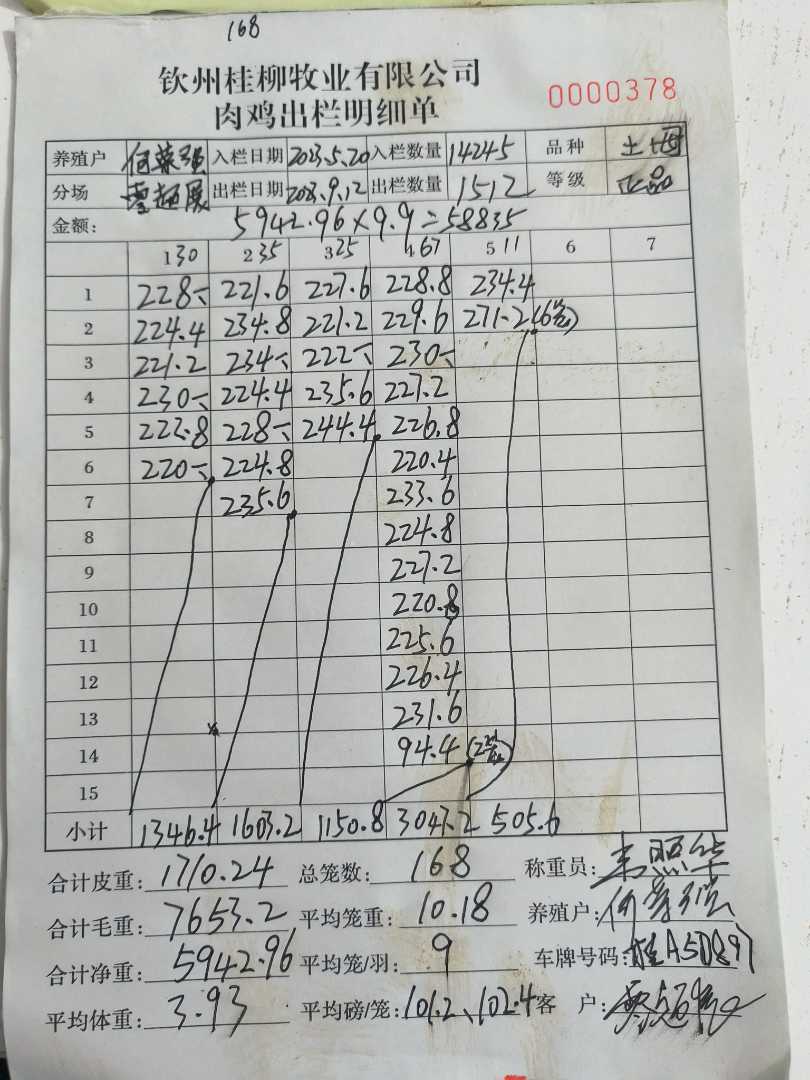 168
钦州桂柳牧业有限公司
肉鸡出栏明细单 0000378
养殖户 入栏日期 2023.5.20 入栏数量 14245 品种 土
分场 出栏日期 2023.9.12 出栏数量 1512 等级 正品
金额: 5942.96×9.9=58835
1 30 2 35 3 25 4 67 5 11 6 7
1 228、 221.6 227.6 228.8 234.4
2 224.4 234.8 221.2 229.6 271.2(6笼)
3 221.2 234、 222、 230、
4 230、 224.4 235.6 227.2
5 222.8 228、 244.4 226.8
6 220、 224.8 220.4
7 235.6 233.6
8 224.8
9 227.2
10 220.8
11 225.6
12 226.4
13 231.6
14 94.4
15
小计 1346.4 1603.2 1150.8 3047.2 505.6
合计皮重: 1710.24 总笼数: 168 称重员:
合计毛重: 7653.2 平均笼重: 10.18 养殖户:
合计净重: 5942.96 平均笼/羽: 9 车牌号码: 桂A5D897
平均体重: 3.93 平均磅/笼: 101.2、102.4 客 户: